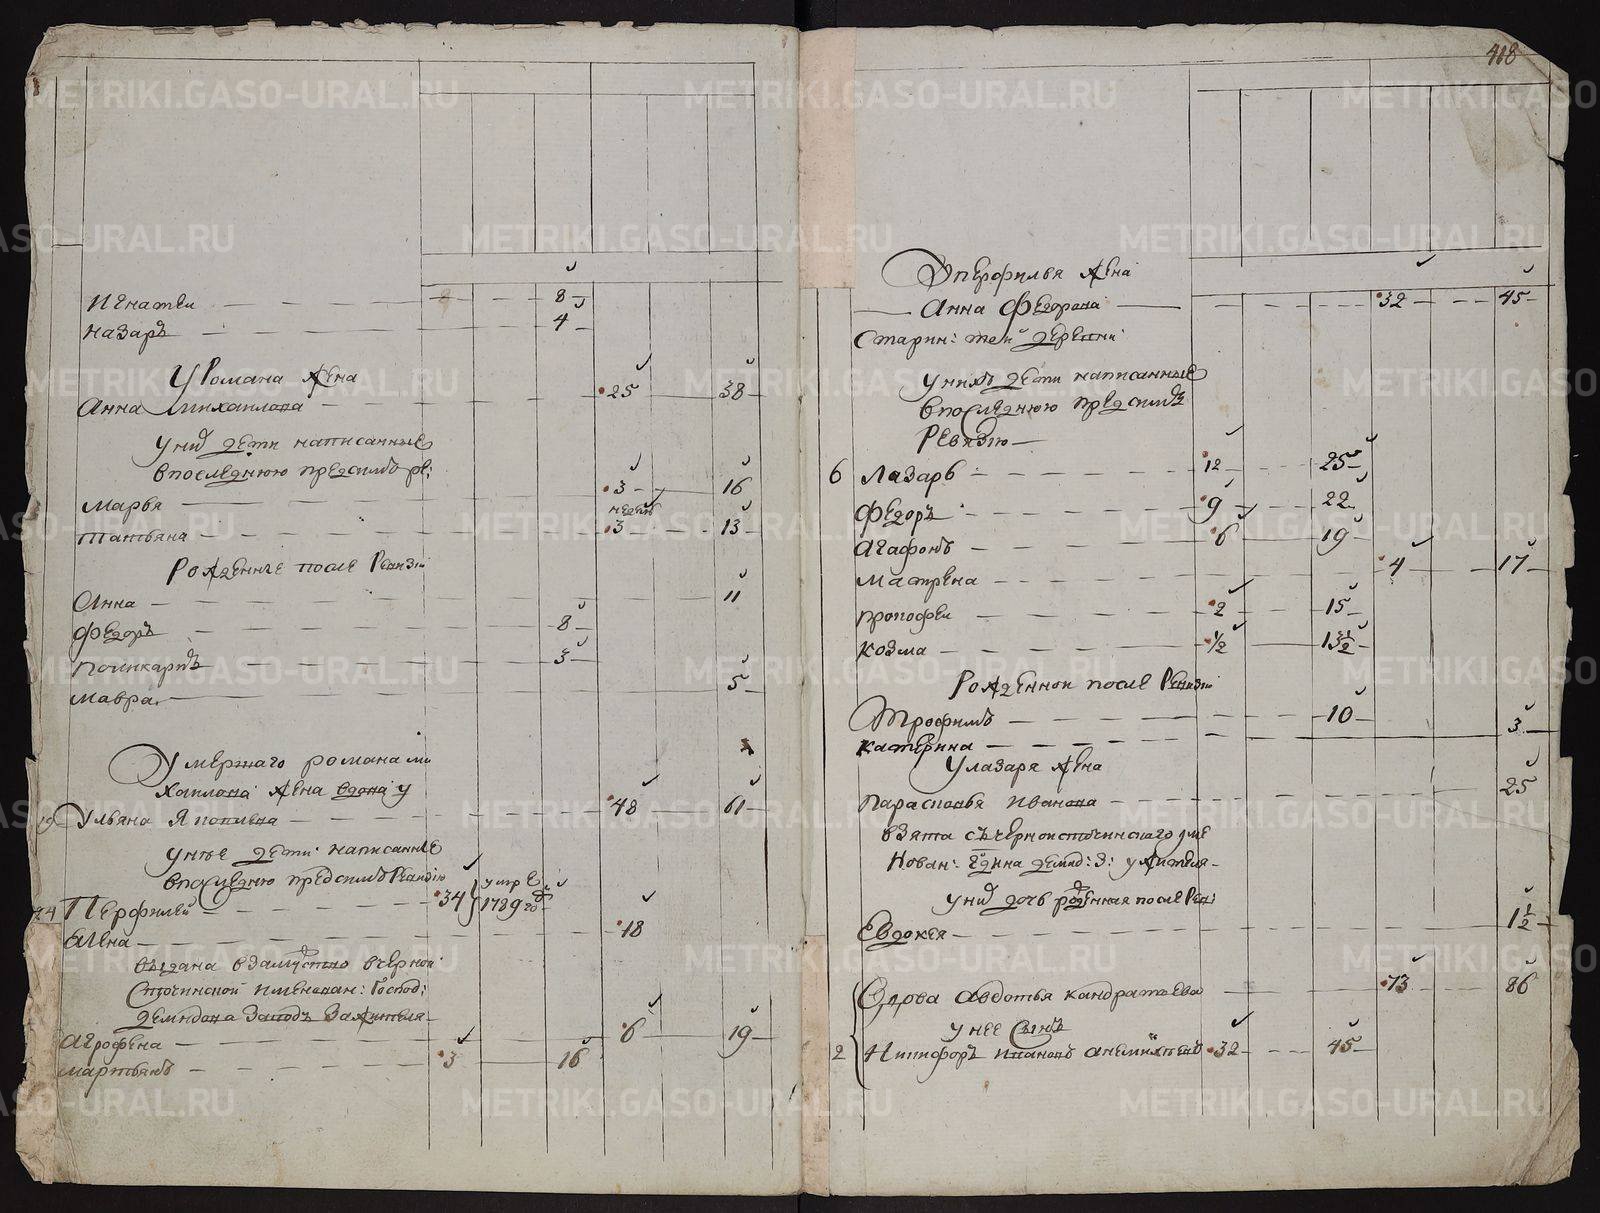 Игнатеи 8
Назаръ 4
У Романа жена
Анна Михаилова 25 38
У нид дети написанные
в последнюю пред симъ ре:
Марья 3 16
недель
Татьяна 3 13
Рожденные после Ревизии
Анна 11
Федоръ 8
Поликарпъ 3
Мавра 5
Умершаго романа ми
хаилова жена вдова у
19 Ульяна Яковлева 48 61
у нее дети написанные
в последнюю пред симъ Ревизию
24 Перфилеи 34 умре в 1789 год
Алена 18
выдана в замужство в черной
сточинской имянован: Господ:
демидова Заводъ За жителя
Агрофена 6 19
мартьянъ 3 16
418
У перфилья жена
Анна Федорова 32 45
Старин: тей деревни
у нихъ дети написанные
в последнюю пред симъ
Ревизию
6 Лазарь 12 25
Федоръ 9 22
Агафонъ 6 19
Мастрена 4 17
Прокофеи 2 15
Козма ½ 13½
Рожденнои после Ревизии
Трофимъ 10
Катерина 3
У лазаря жена
Парасковья Иванова 25
взята съ черноисточинскаго
у нид дочь рожденная после Рев:
Евдокея 1½
Вдова Авдотья Кандратьева 73 86
у нее Сынъ
2 Никифоръ Ивановъ 32 45